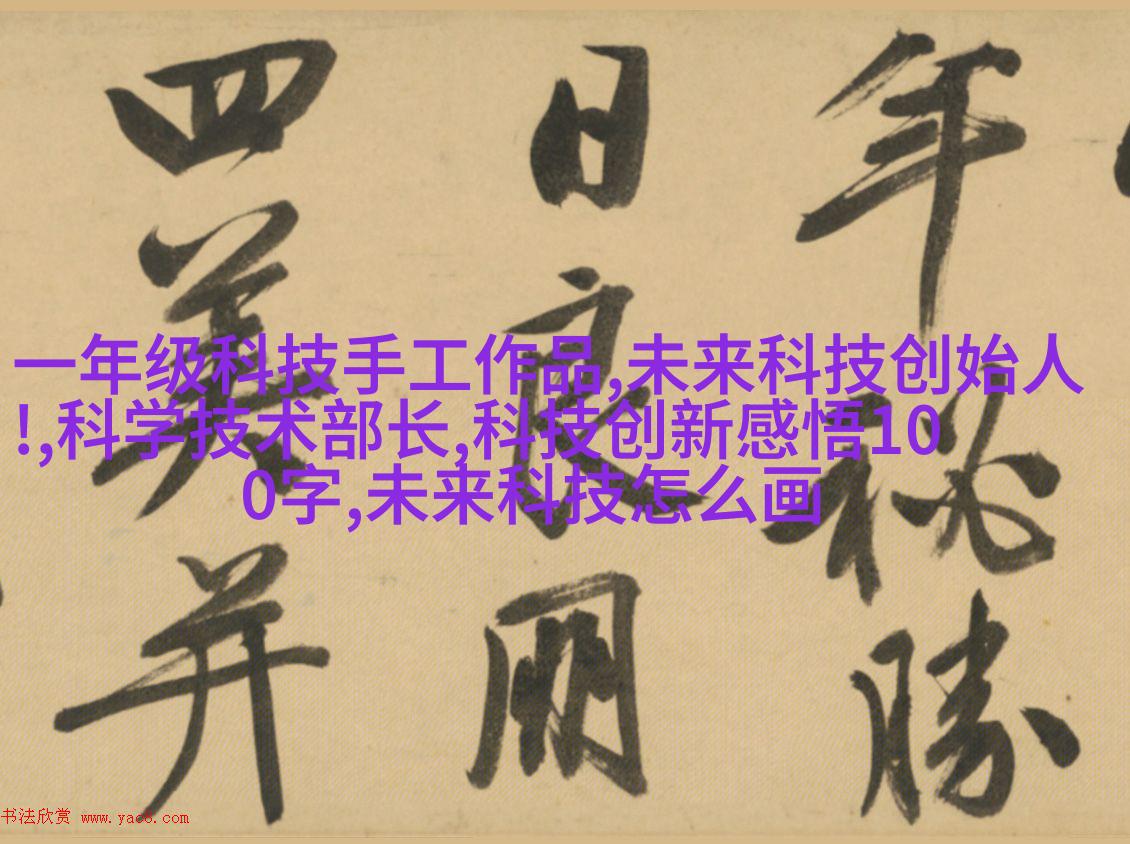 年秘勝
日良朋
四美并
一年级科技手工作品,未来科技创始人
!,科学技术部长,科技创新感悟10
0字,未来科技怎么画
书法欣赏 www.yac8.com